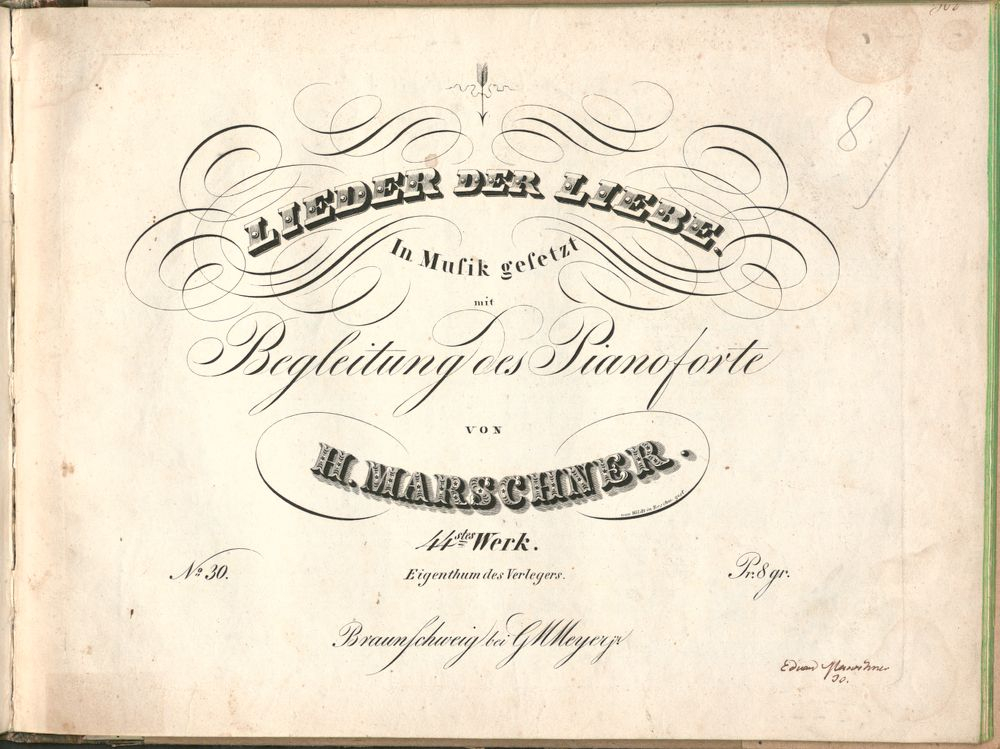 8.
LIEDER DER LIEBE.
In Muſik geſetzt
mit
Begleitung des Pianoforte
VON
H. MARSCHNER.
44stes Werk.
No 30.
Eigenthum des Verlegers.
Pr. 8 gr.
Braunſchweig bei G M Meyer jr
30.